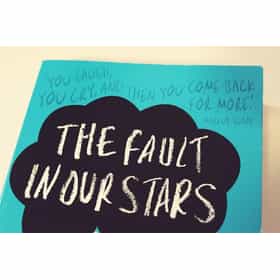 YOU LAUGH,
YOU CRY, AND THEN YOU COME BACK
FOR MORE!
THE FAULT
IN OUR STARS